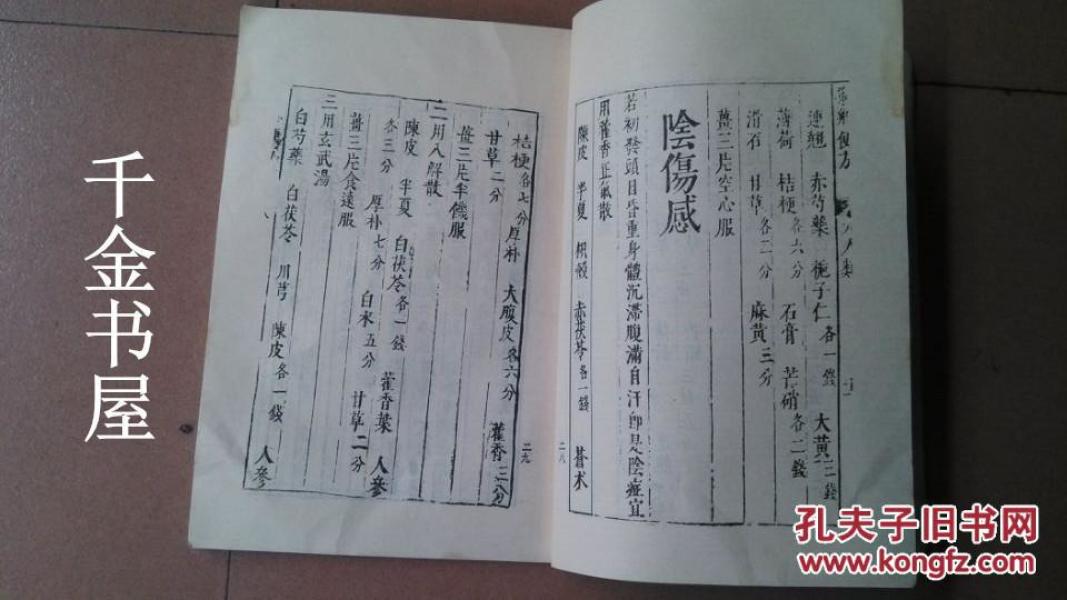 連翹 赤芍藥 梔子仁各一錢 大黃二錢
薄荷 桔梗各六分 石膏 芒硝各二錢
滑石 甘草各二分 麻黃三分
薑三片空心服
陰傷感
若初發頭目昏重身體沉滯腹滿自汗卽是陰症宜
用藿香正氣散
陳皮 半夏 枳殼 赤茯苓各一錢 蒼术
二八
二九
桔梗各七分厚朴 大腹皮各六分 藿香三分
甘草二分
薑三片半饑服
二用入解散
陳皮 半夏 白茯苓各一錢 藿香葉 人參
各三分 厚朴七分 白术五分 甘草二分
薑三片食遠服
三用玄武湯
白芍藥 白茯苓 川芎 陳皮各一錢 人參
千金书屋
孔夫子旧书网
www.kongfz.com